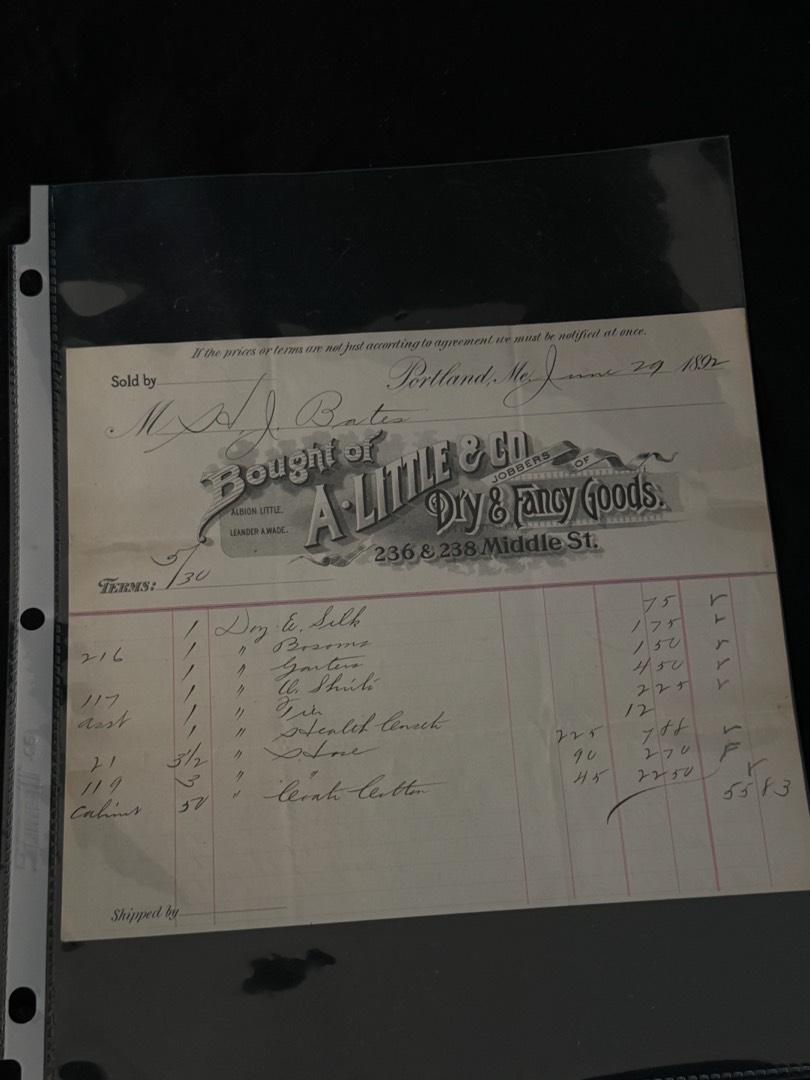 If the prices or terms are not just according to agreement we must be notified at once.
Sold by
Portland, Me. June 29 1892
M H. J. Bates
Bought of
A. LITTLE & CO
JOBBERS OF
Dry & Fancy Goods.
ALBION LITTLE.
LEANDER A. WADE.
236 & 238 Middle St.
TERMS: 5/30
1 Doz E. Silk 75
216 1 " Bosoms 1 75
1 " Garters 1 50
117 1 " Shirts 4 50
asst 1 " Ties 2 25
1 " Health 12
21 3 1/2 " Hose 2 25 7 88
119 3 " " 90 2 70
50 " Coats Cotton 45 22 50
55 83
Shipped by